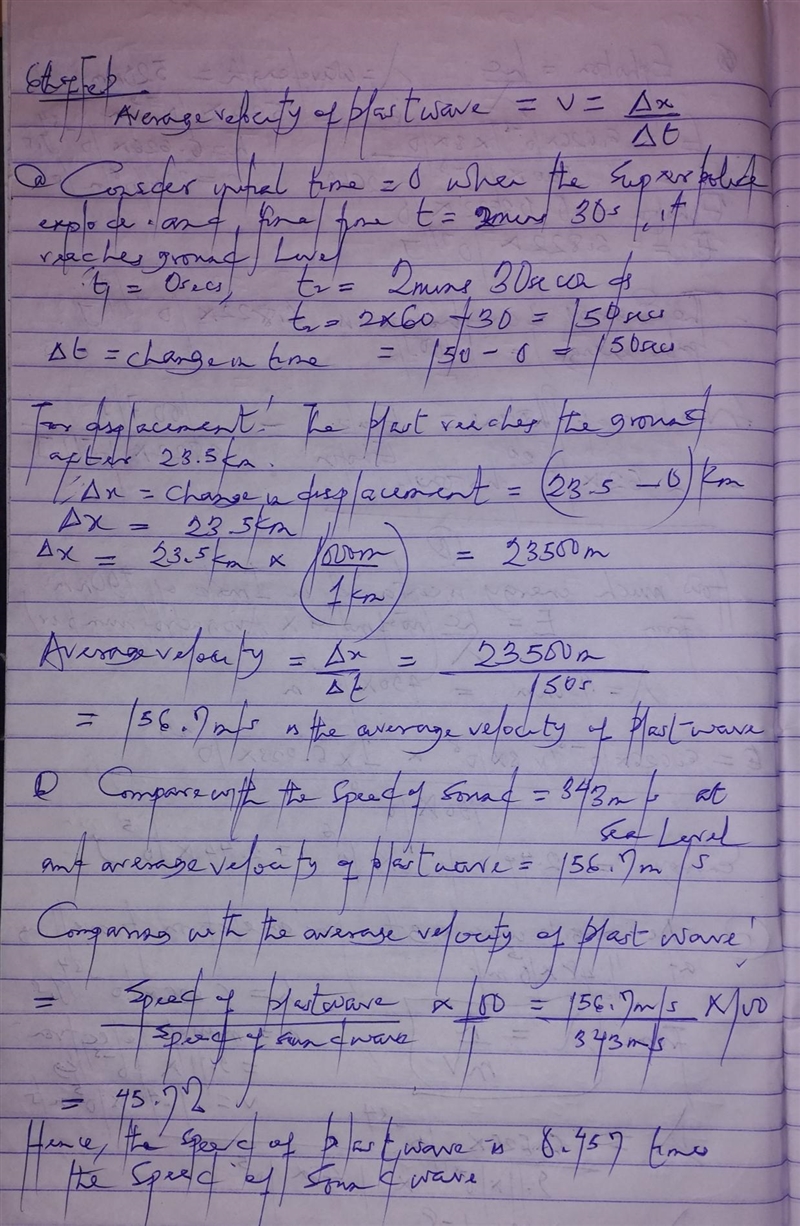 Average velocity of blast wave = v = Δx/Δt
(a) Consider initial time = 0 when the Superbolide
explode and, final time t = 2mins 30s, it
reaches ground level
t₁ = 0secs, t₂ = 2mins 30seconds
t₂ = 2x60 + 30 = 150secs
Δt = change in time = 150 - 0 = 150secs
For displacement:- The blast reaches the ground
after 23.5km.
∴ Δx = change in displacement = (23.5 - 0) km
Δx = 23.5km
Δx = 23.5km x (1000m/1km) = 23500m
Average velocity = Δx/Δt = 23500m/150s
= 156.7m/s is the average velocity of blast wave
(b) Compare with the speed of sound = 343m/s at
Sea Level
and average velocity of blast wave = 156.7m/s
Comparing with the average velocity of blast wave:
= Speed of blastwave/Speed of sound wave x 100 = 156.7m/s/343m/s x 100
= 45.7%
Hence, the speed of blast wave is 0.457 times
the speed of sound wave